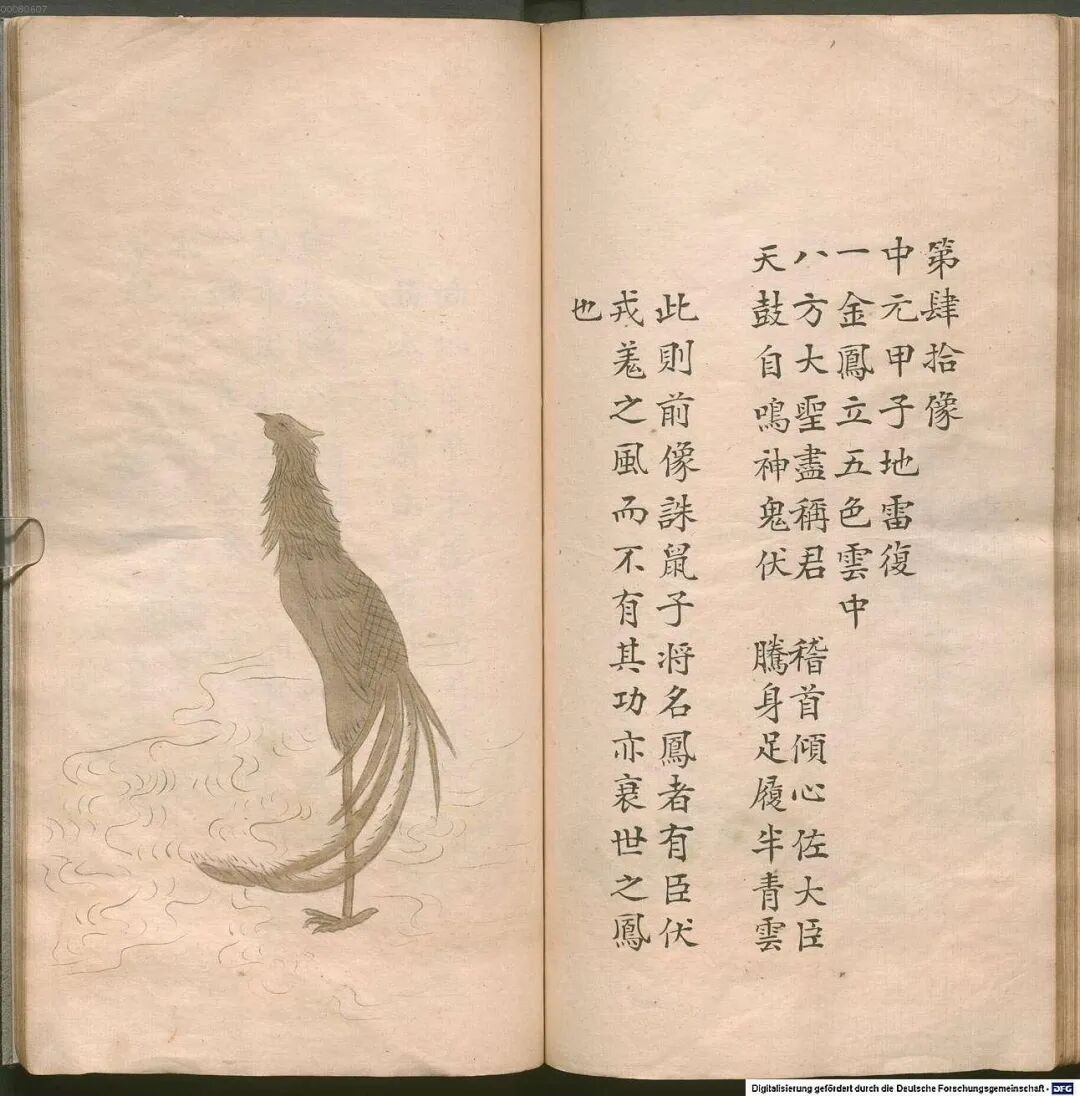 00080607
第肆拾像
中元甲子地雷復
一金鳳立五色雲中
八方大聖盡稱君 稽首傾心佐大臣
天鼓自鳴神鬼伏 騰身足履半青雲
此則前像誅鼠子將名鳳者有臣伏
戎羗之風而不有其功亦衰世之鳳
也
Digitalisierung gefördert durch die Deutsche Forschungsgemeinschaft - DFG